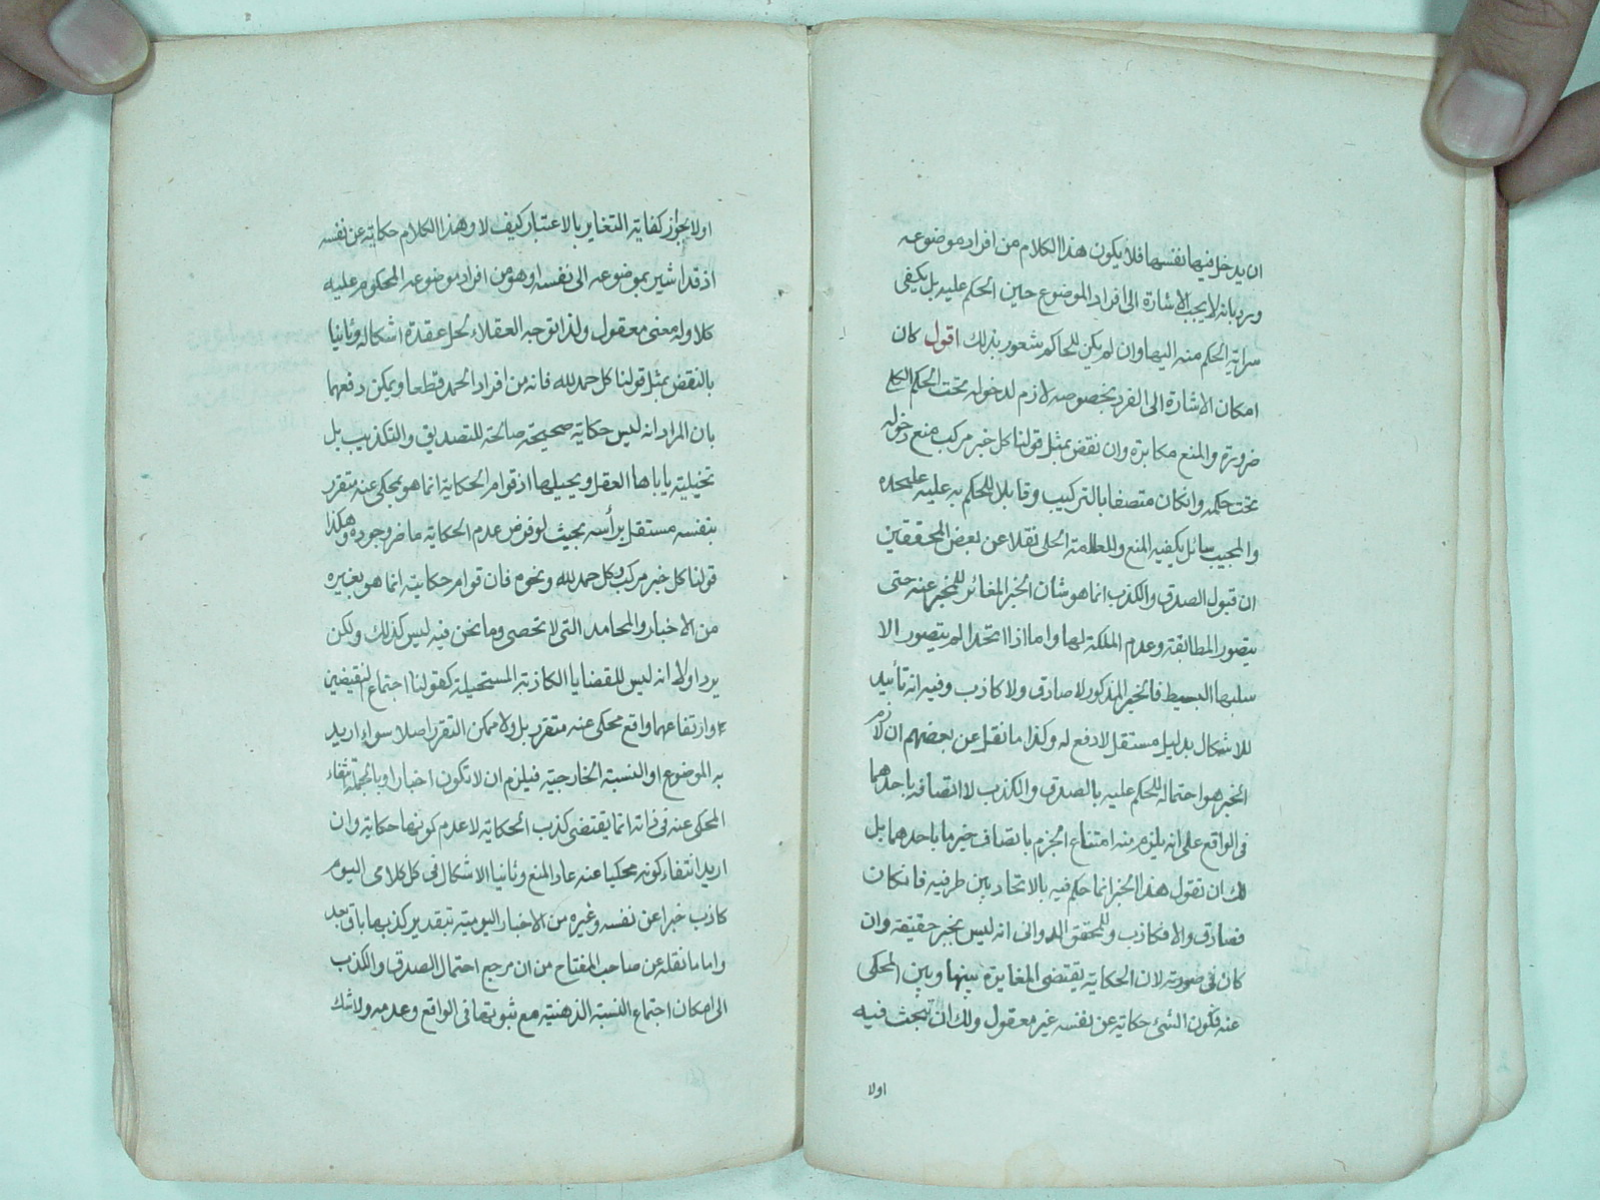 ان يدخل فيها نفسها فلا يكون هذا الكلام من افراد موضوعه
ورد بانه لا يجب الاشارة الى افراد الموضوع حين الحكم عليه بل يكفى
سراية الحكم منه اليها وان لم يكن للحاكم شعور بذلك اقول كان
امكان الاشارة الى الفرد بخصوصه لازم لدخوله تحت الحكم الكلى
ضرورة والمنع مكابرة وان نقض بمثل قولنا كل خبر مركب منع دخوله
تحت حكمه وانكان متصفا بالتركيب وقابلا للحكم به عليه عليحده
والمجيب سائل يكفيه المنع وللعلامة الحلى نقلا عن بعض المحققين
ان قبول الصدق والكذب انما هو شان الخبر المغائر للمخبر عنه حتى
يتصور المطابقة وعدم الملكة لها واما اذا اتحدا لم يتصور الا
سلبها البسيط فالخبر المذكور لا صادق ولا كاذب وفيه انه تأئيد
للاشكال بدليل مستقل لا دفع له وكذا ما نقل عن بعضهم ان لازم
الخبر هو احتماله للحكم عليه بالصدق والكذب لا اتصافه باحدهما
فى الواقع على انه يلزم منه امتناع الجزم باتصاف خبر ما باحدهما بل
لك ان تقول هذا الخبر انما حكم فيه بالاتحاد بين طرفيه فانكان
فصادق والا فكاذب وللمحقق الدوانى انه ليس بخبر حقيقة وان
كان فى صورته لان الحكاية يقتضى المغايرة بينها وبين المحكى
عنه فكون الشئ حكاية عن نفسه غير معقول ولك ان تبحث فيه
اولا
اولا بجواز كفاية التغاير بالاعتبار كيف لا وهذا الكلام حكاية عن نفسه
اذ قد اشير بموضوعه الى نفسه او هو من افراد موضوعه المحكوم عليه
كلا وله معنى معقول ولذا توجه العقلاء لحل عقدة اشكاله وثانيا
بالنقض بمثل قولنا كل حمد لله فانه من افراد الحمد قطعا ويمكن دفعهما
بان المراد انه ليس حكاية صحيحة صالحة للتصديق والتكذيب بل
تخيلية ياباها العقل ويحيلها اذ قوام الحكاية انما هو بمحكى عنه متقرر
بنفسه مستقل برأسه بحيث لو فرض عدم الحكاية ما ضر وجوده وهكذا
قولنا كل خبر مركب وكل حمد لله ونحوه فان قوام حكايته انما هو بغيره
من الاخبار والمحامد التى لا تحصى وما نحن فيه ليس كذلك ولكن
يرد اولا انه ليس للقضايا الكاذبة المستحيلة كقولنا اجتماع النقيضين
وارتفاعهما واقع محكى عنه متقرر بل ولا ممكن التقرر اصلا سواء اريد
به الموضوع او النسبة الخارجية فيلزم ان لا تكون اخبارا وبالجملة انتفاء
المحكى عنه فى ذاته انما يقتضى كذب الحكاية لا عدم كونها حكاية وان
اريد انتفاء كونه محكيا عنه عاد المنع وثانيا الاشكال فى كل كلامى اليوم
كاذب خبرا عن نفسه وغيره من الاخبار اليومية بتقدير كذبها باق بعد
واما ما نقله عن صاحب المفتاح من ان مرجع احتمال الصدق والكذب
الى امكان اجتماع النسبة الذهنية مع ثبوتها فى الواقع وعدمه ولا شك